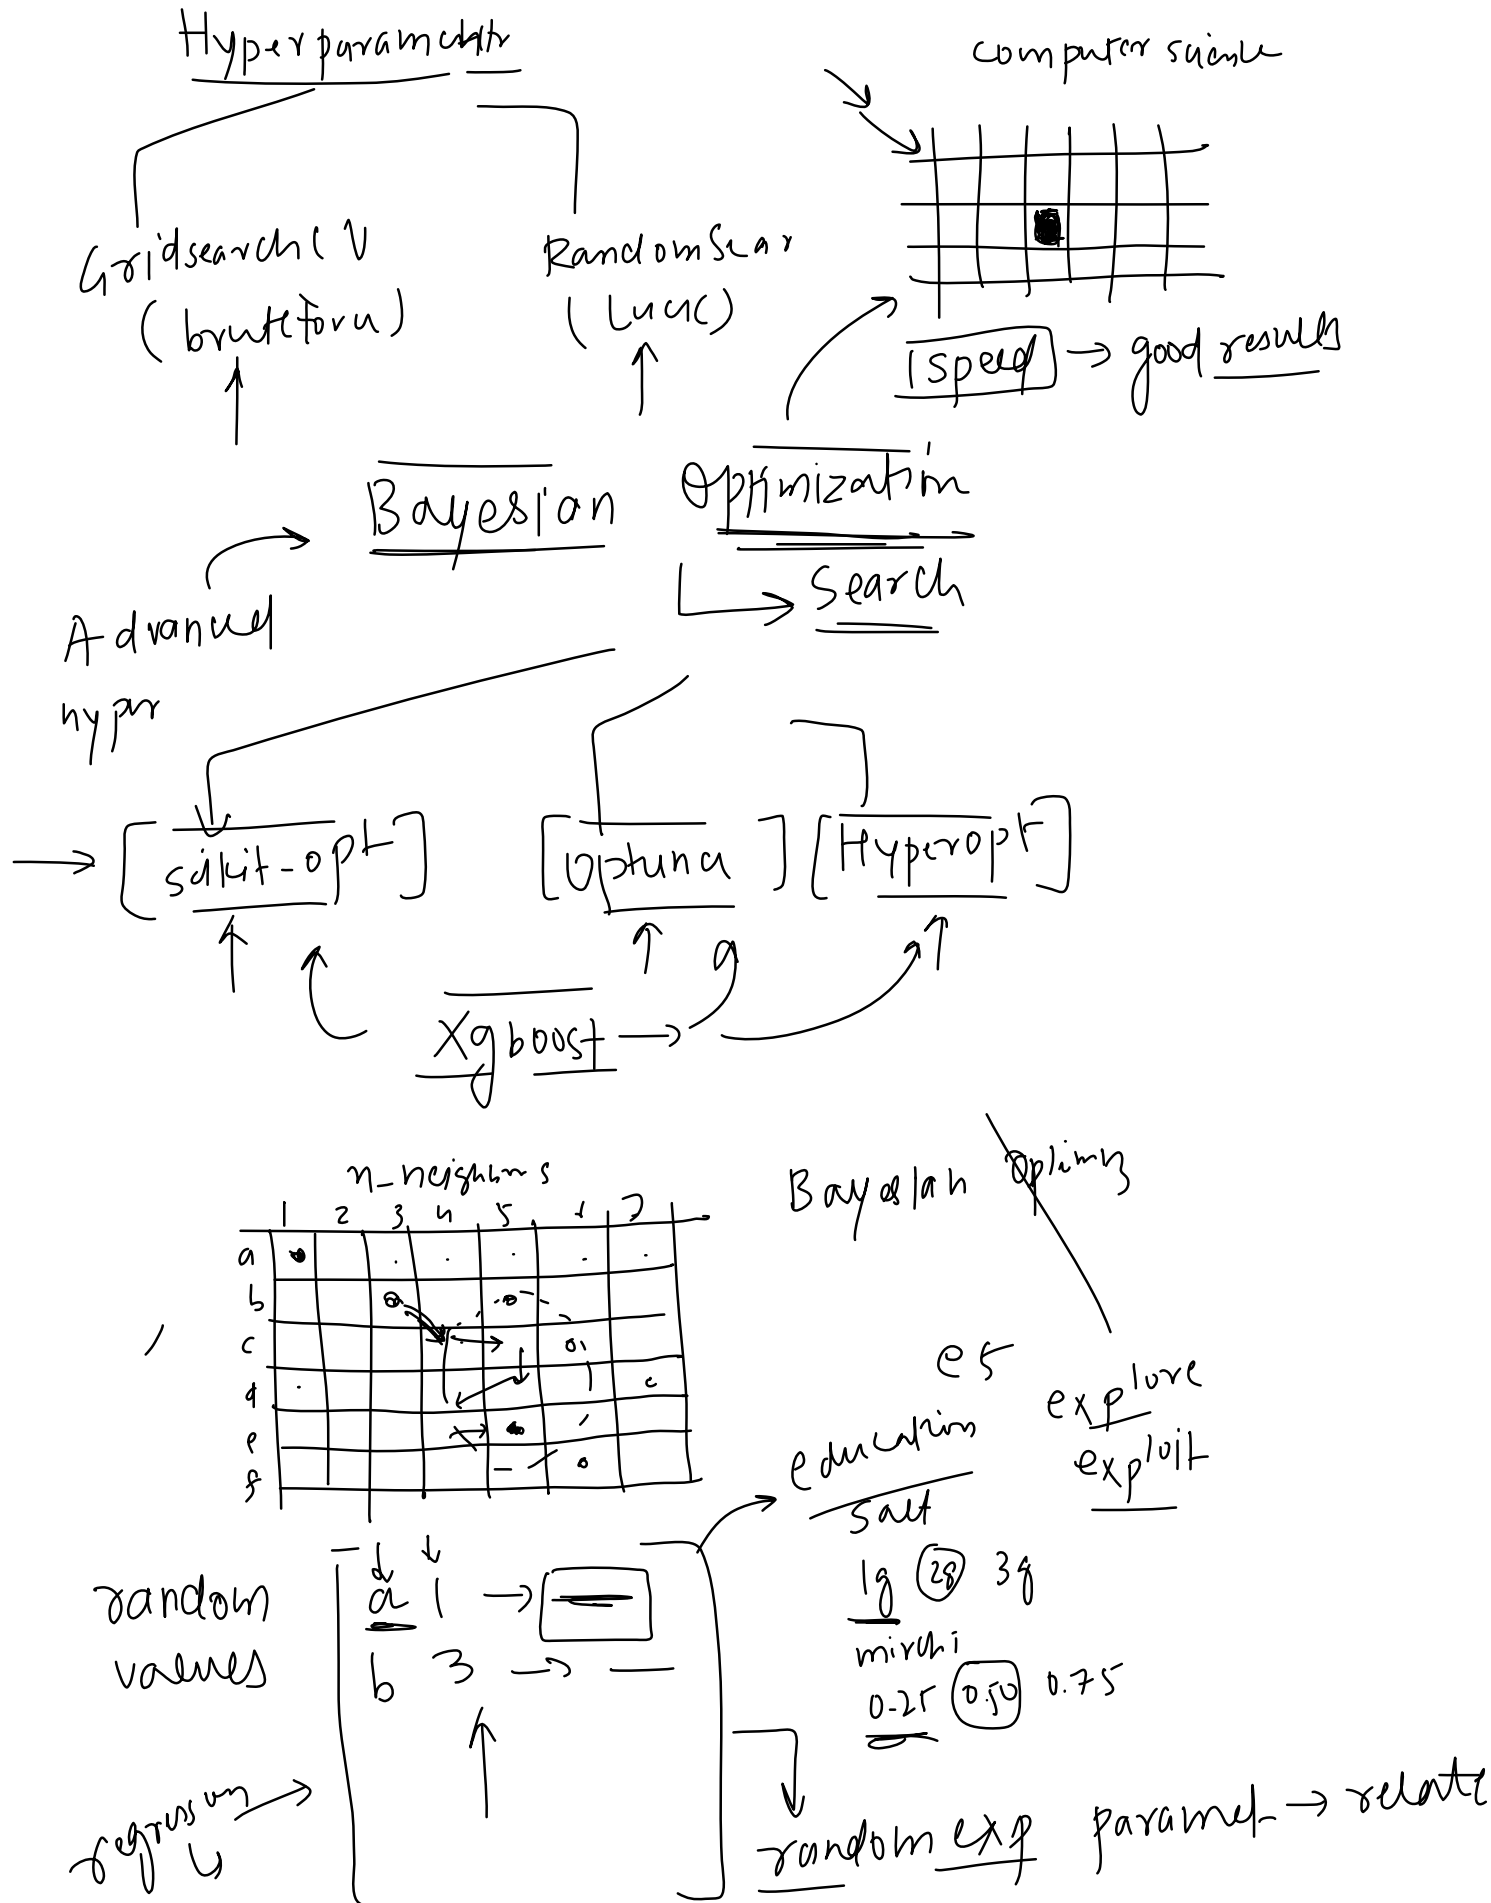 Hyperparameter
computer science
GridsearchCV
(bruteforce)
RandomSear
(Luck)
speed → good results
Bayesian Optimization
Search
Advanced
hyper
[scikit-opt] [Optuna] [Hyperopt]
Xgboost →
n_neighbors
1 2 3 4 5 6 7
a
b
c
d
e
f
Bayesian Optimiz
e5
explore
exploit
education
salt
1g 2g 3g
mirchi
0.25 0.50 0.75
random
values
a 1 →
b 3 →
regression
random exp
paramet → relate